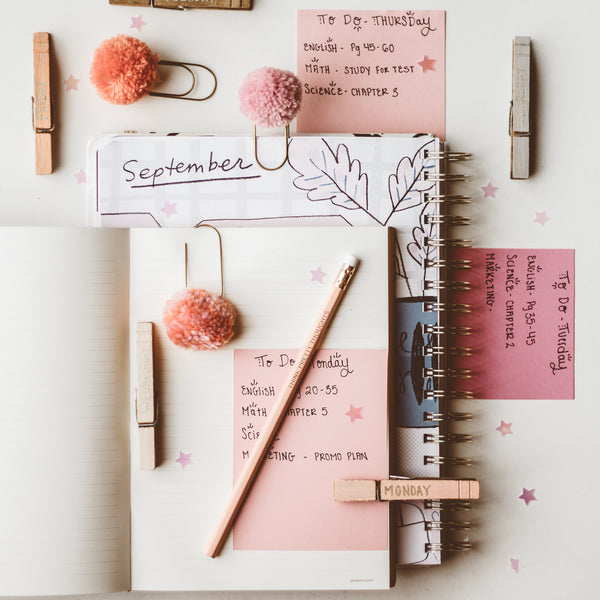 To Do - THURSDAY
ENGLISH - Pg 45-60
MATH - STUDY FOR TEST
SCIENCE - CHAPTER 3
September
To Do - Tuesday
ENGLISH - Pg 35-45
SCIENCE - CHAPTER 2
MARKETING -
To Do Monday
ENGLISH Pg 20-35
MATH CHAPTER 5
SCIE
MARKETING - PROMO PLAN
MONDAY